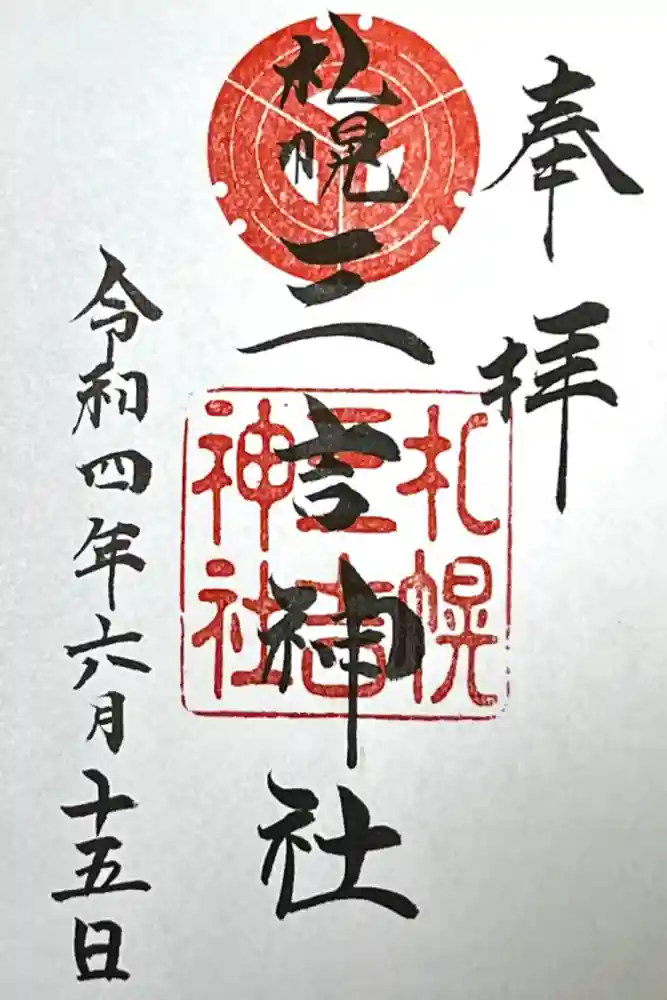 奉拝
札幌三吉神社
札幌三吉神社
令和四年六月十五日